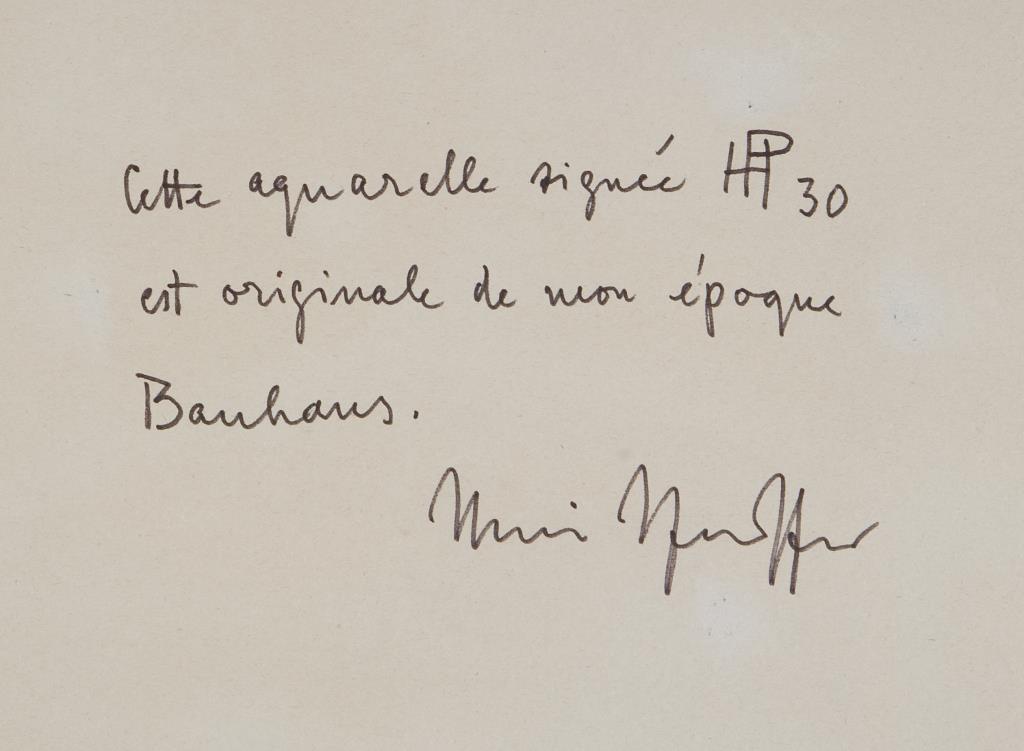 Cette aquarelle signée HP 30
est originale de mon époque
Bauhaus.
Henri Pfeiffer